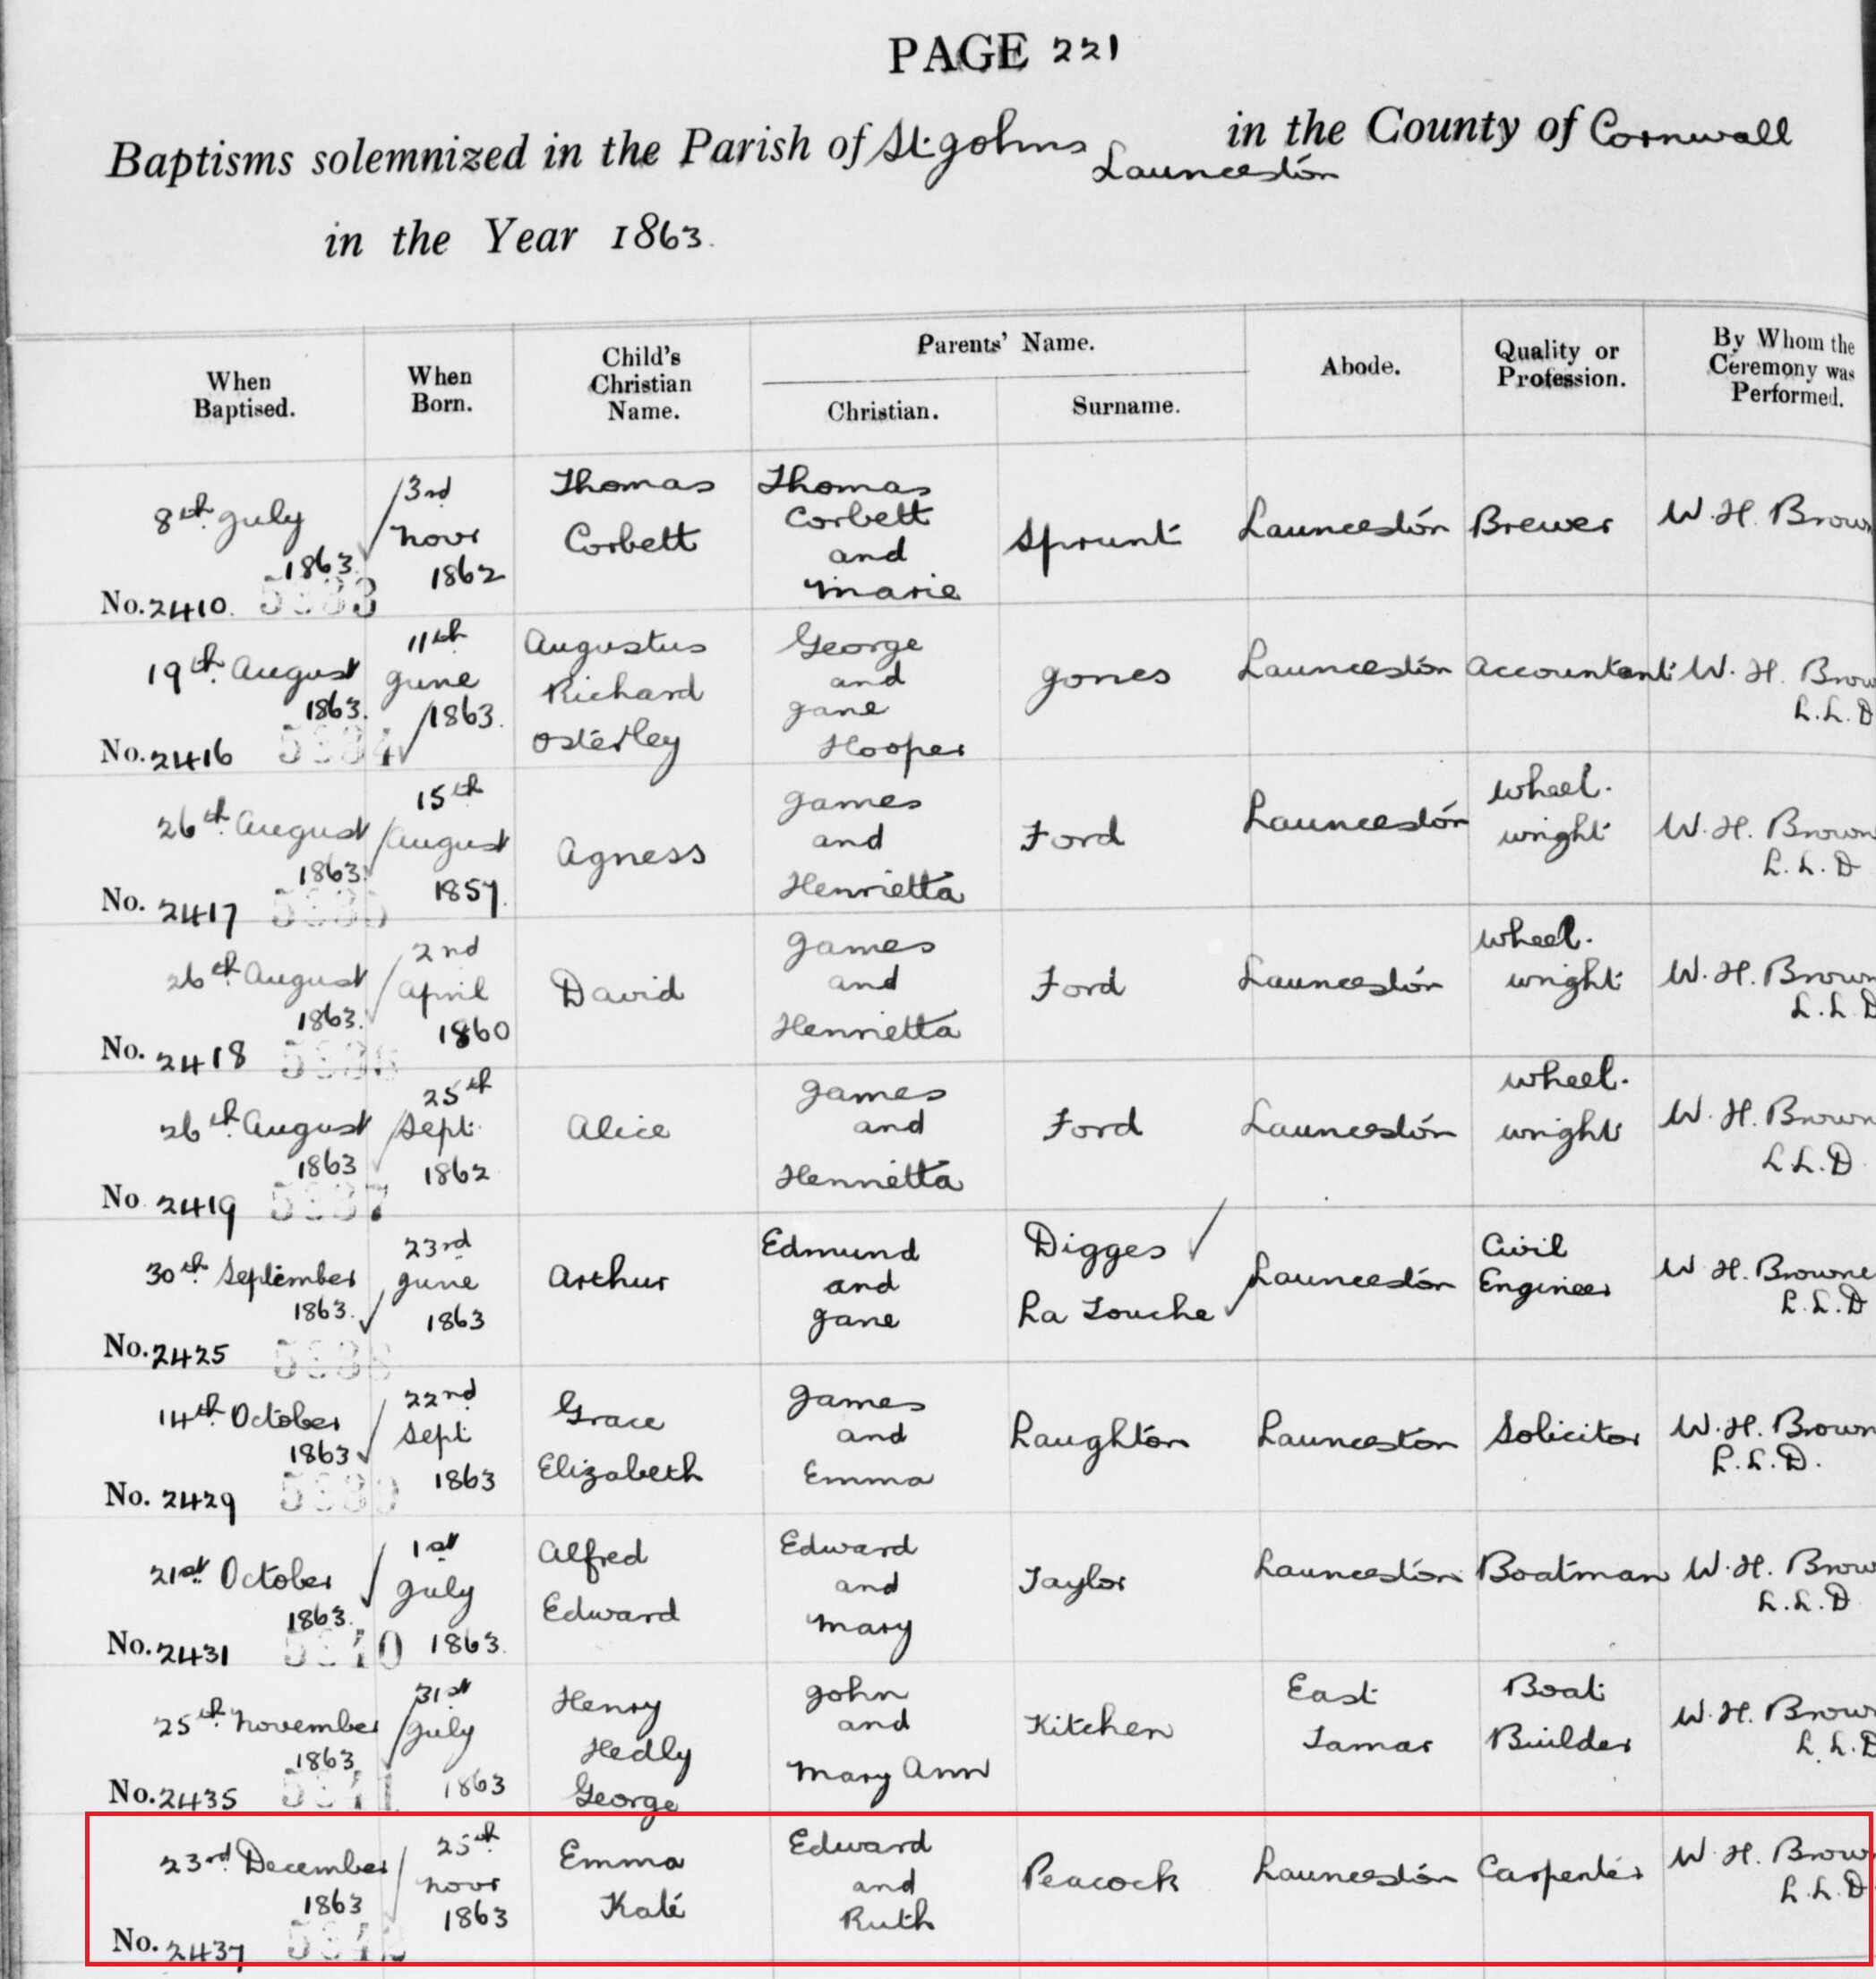 PAGE 221
Baptisms solemnized in the Parish of St. Johns Launceston in the County of Cornwall
in the Year 1863.
When Baptised. When Born. Child's Christian Name. Parents' Name. Christian. Surname. Abode. Quality or Profession. By Whom the Ceremony was Performed.
8th July 1863 No. 2410. 3rd Novr 1862 Thomas Corbett Thomas Corbett and Marie Sprunt Launceston Brewer W. H. Brown
19th August 1863. No. 2416 5334 11th June 1863. Augustus Richard Osterley George and Jane Hooper Jones Launceston Accountant W. H. Brow L.L.D
26th August 1863. No. 2417 15th August 1857. Agness James and Henrietta Ford Launceston wheel.wright W. H. Brown L.L.D
26th August 1863. No. 2418 2nd April 1860 David James and Henrietta Ford Launceston wheel.wright W. H. Brown L.L.D
26th August 1863 No. 2419 5337 25th Sept. 1862 Alice James and Henrietta Ford Launceston wheel.wright W. H. Brown L.L.D
30th September 1863. No. 2425 23rd June 1863 Arthur Edmund and Jane Digges La Touche Launceston Civil Engineer W H. Browne L.L.D
14th October 1863 No. 2429 22nd Sept 1863 Grace Elizabeth James and Emma Laughton Launceston Solicitor W. H. Brown L.L.D.
21st October 1863. No. 2431 5340 1st July 1863. Alfred Edward Edward and Mary Taylor Launceston Boatman W. H. Brow L.L.D
25th November 1863 No. 2435 5341 31st July 1863 Henry Hedly George John and Mary Ann Kitchen East Tamar Boat Builder W. H. Brow L.L.D
23rd December 1863 No. 2437 5342 25th Novr 1863 Emma Kate Edward and Ruth Peacock Launceston Carpenter W. H. Brow L.L.D